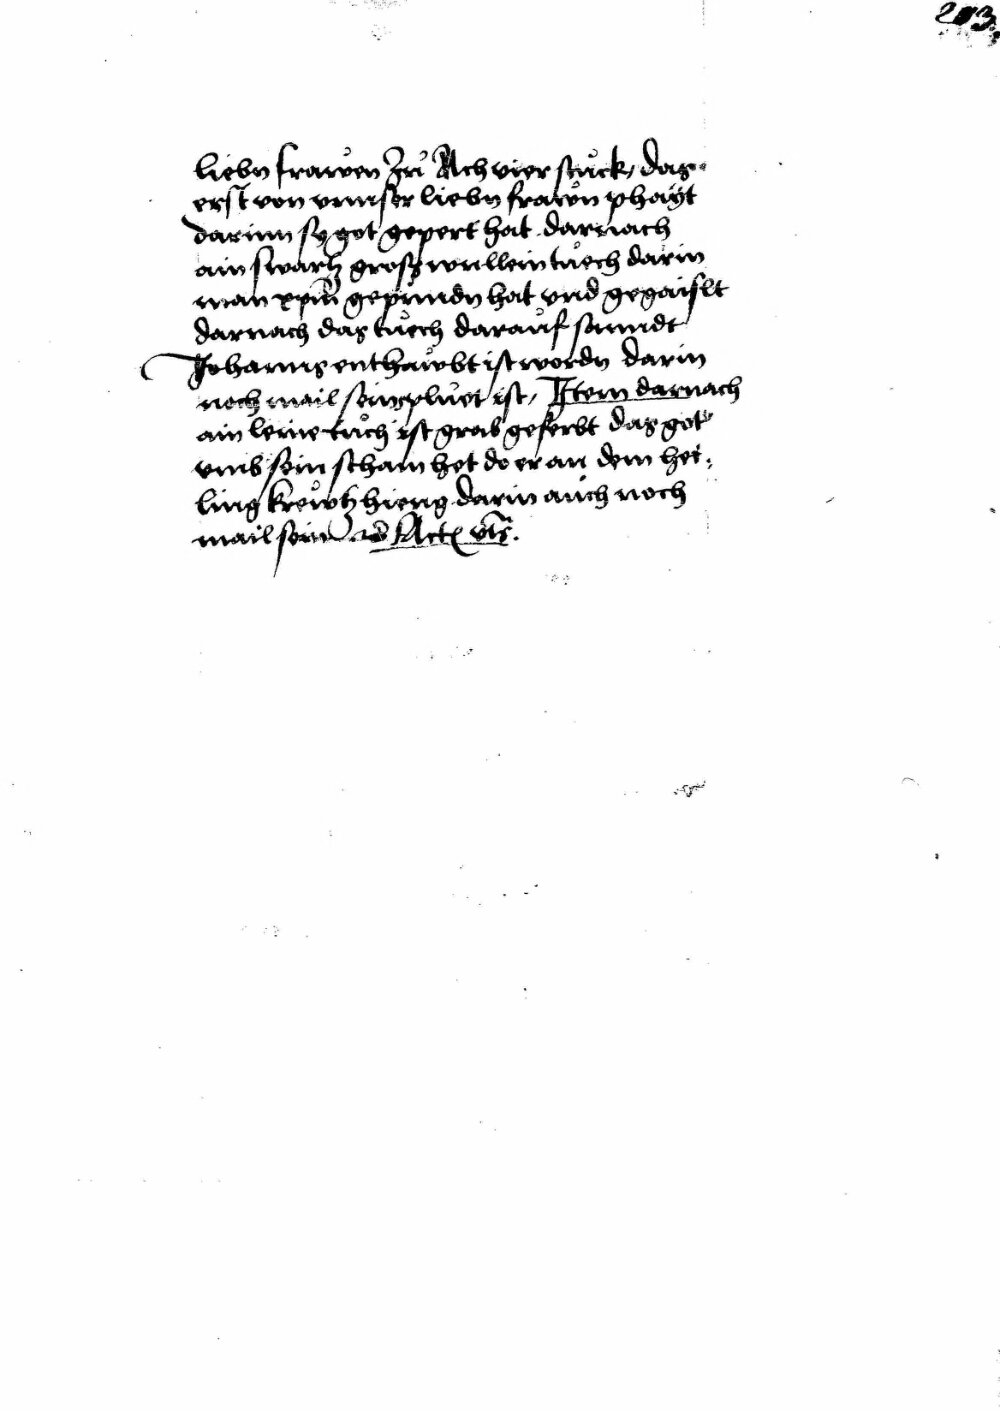 203.
liebn frawen zu Ach vier stuck, das
erst von vnnser liebn frawn phayt
darinn sy got gepert hat darnach
ain swartz gross wullein tuech darin
man xpm gepundn hat vnd gegaislt
darnach das tuech darauf sanndt
Johanns enthawbt ist wordn darin
noch mail seins pluet ist, Item darnach
ain leine tuch ist grab geferbt das got
vmb sein scham het do er an dem hei:
ling krewtz hieng darin auch noch
mail sein Act vts.